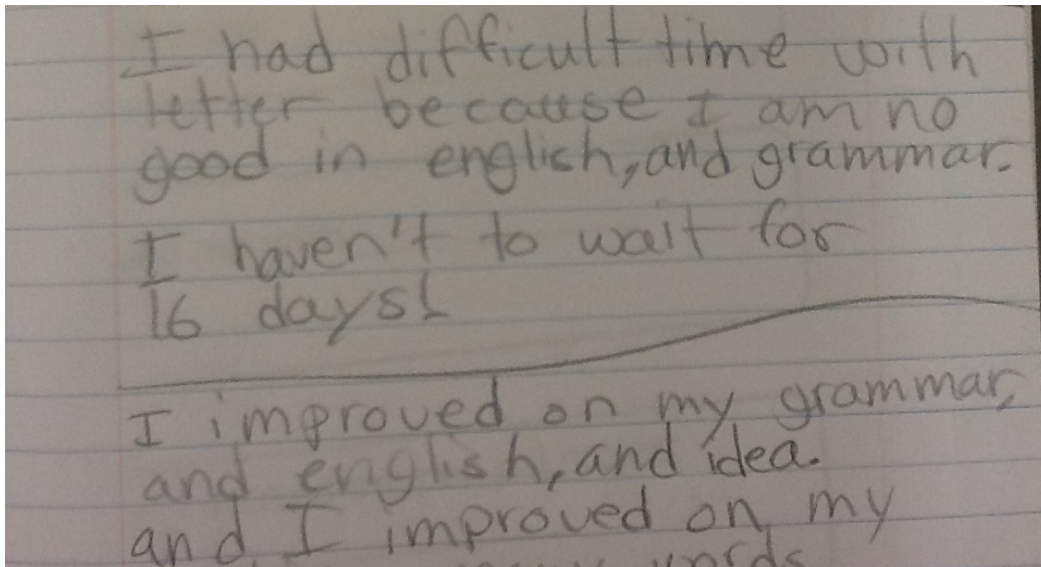 I had difficult time with
letter because I am no
good in english, and grammar.
I haven't to wait for
16 days!
I improved on my grammar,
and english, and idea.
and I improved on my
words